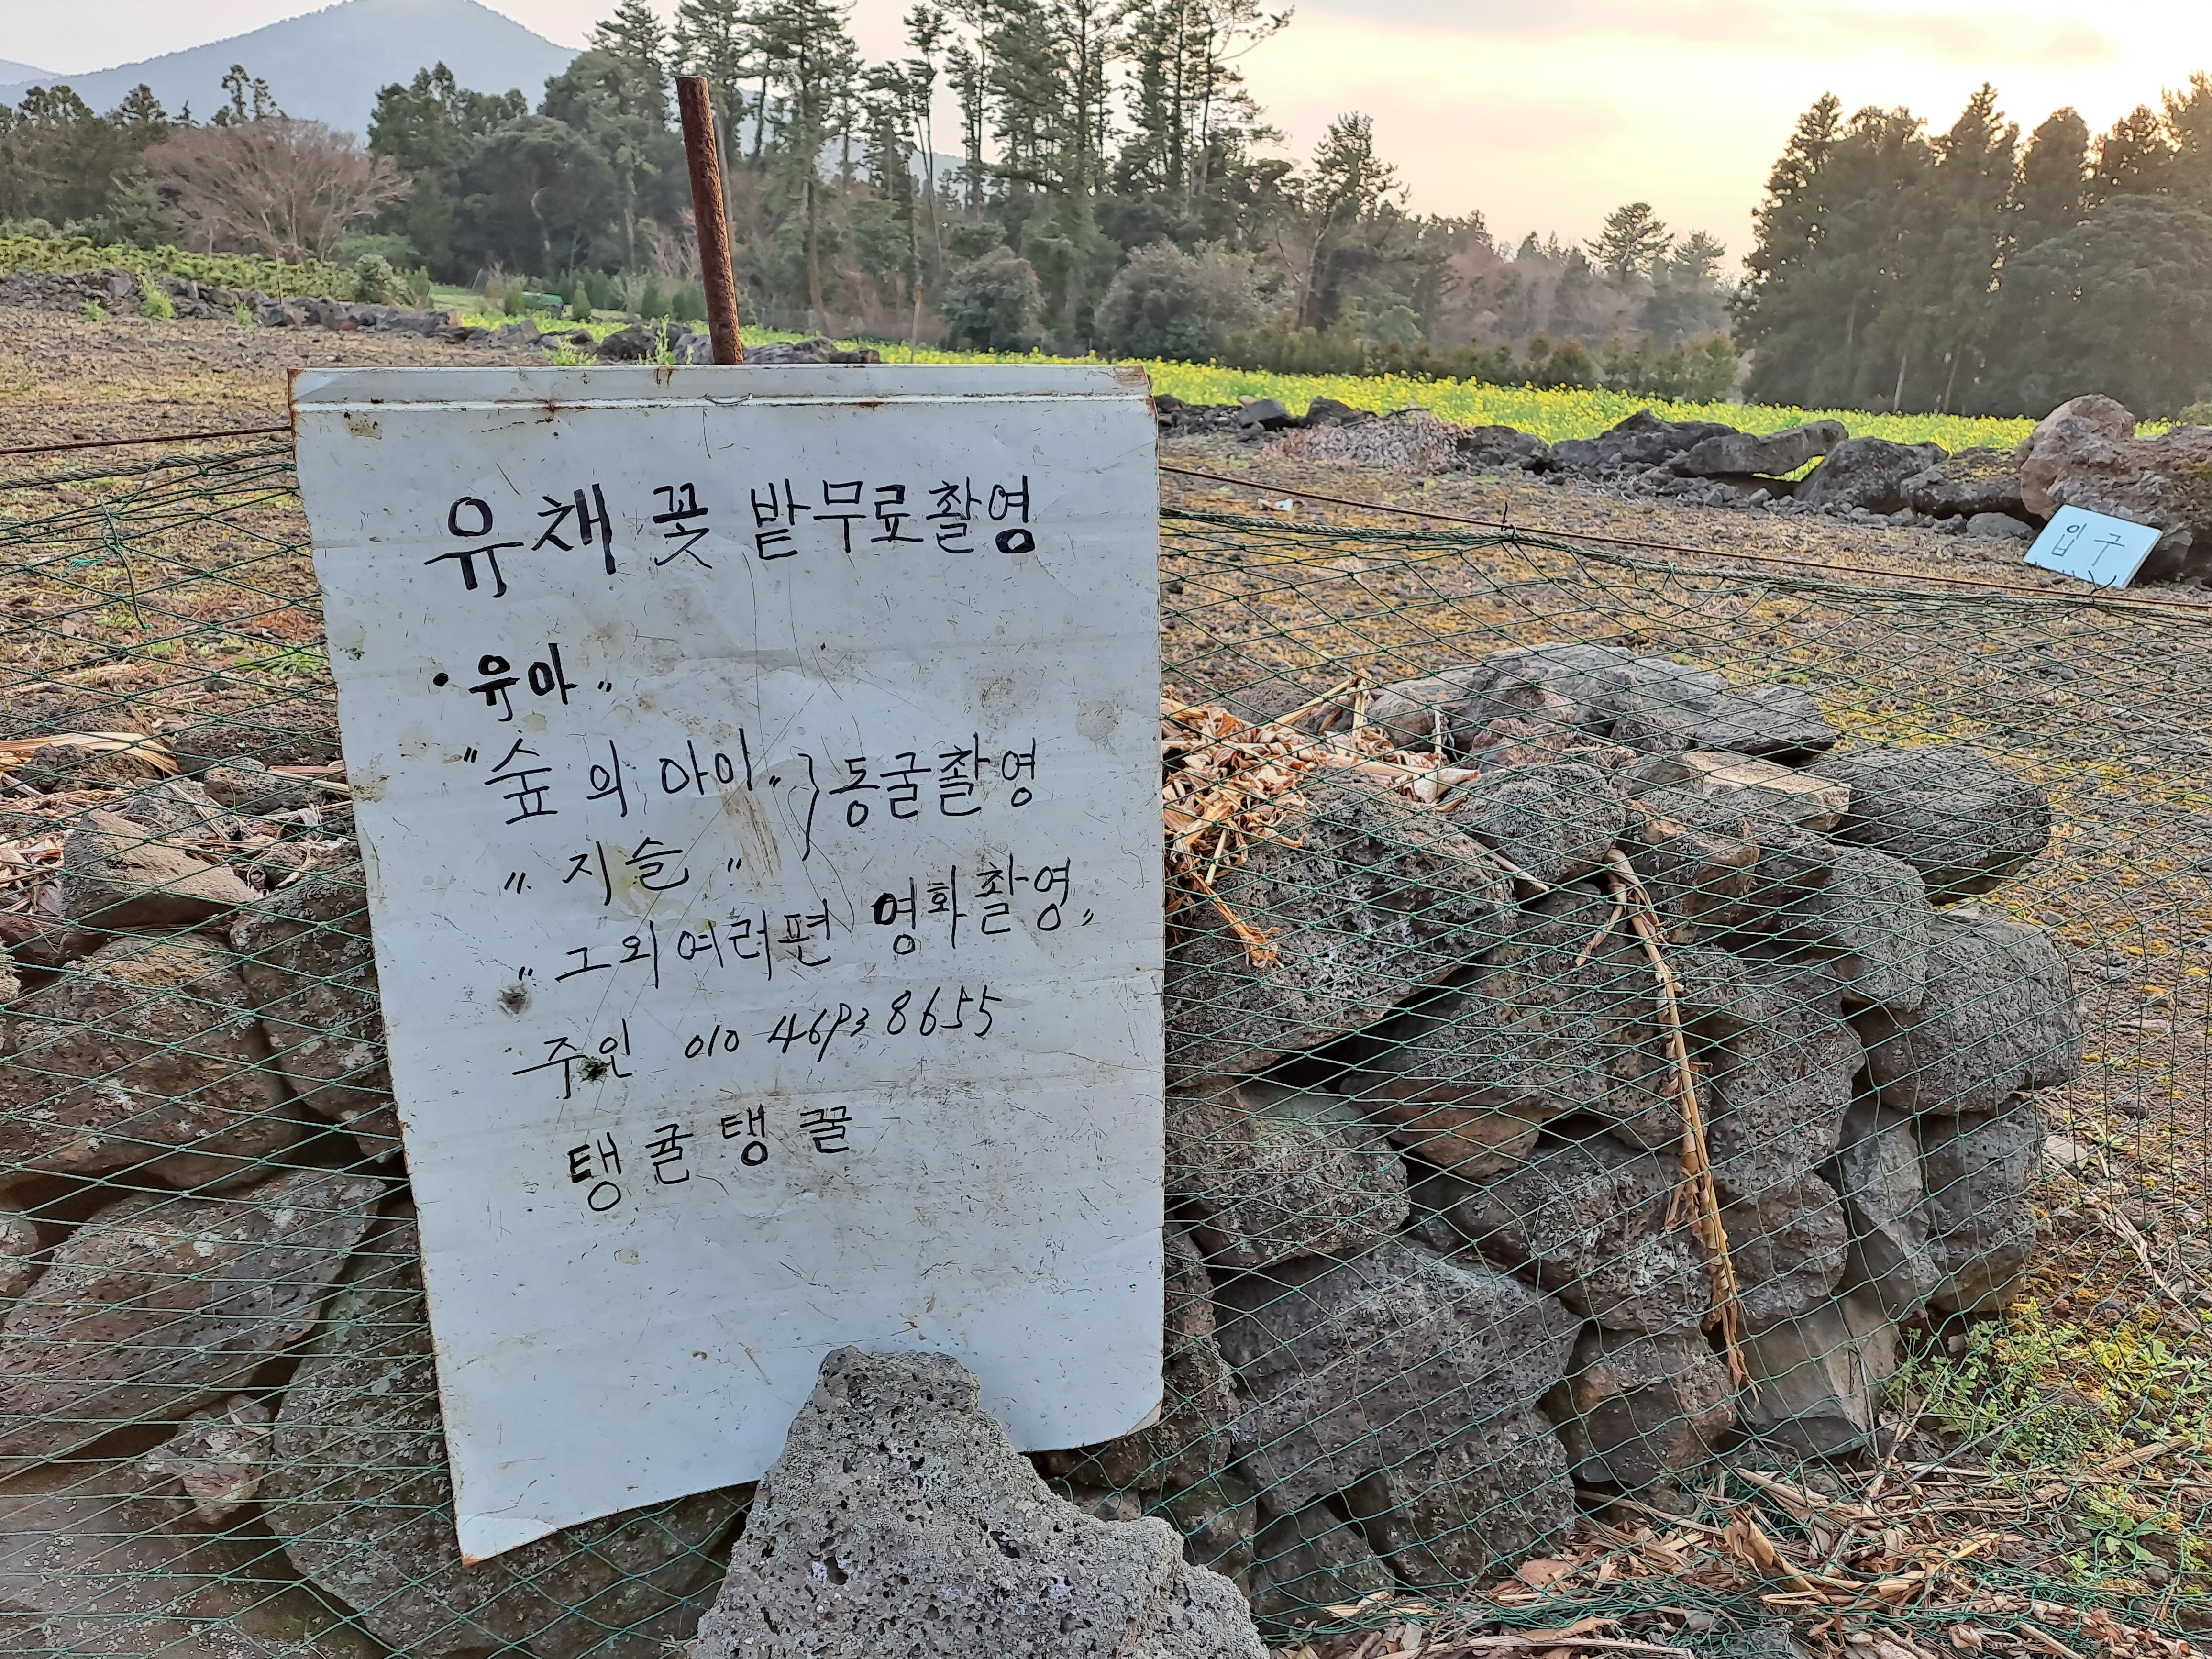 유채 꽃 밭무료촬영
• 유아"
"숲의 아이" } 동굴촬영
" 지슬 "
" 그외 여러편 영화촬영"
주인 010 4693 8655
탱귤탱귤
입구